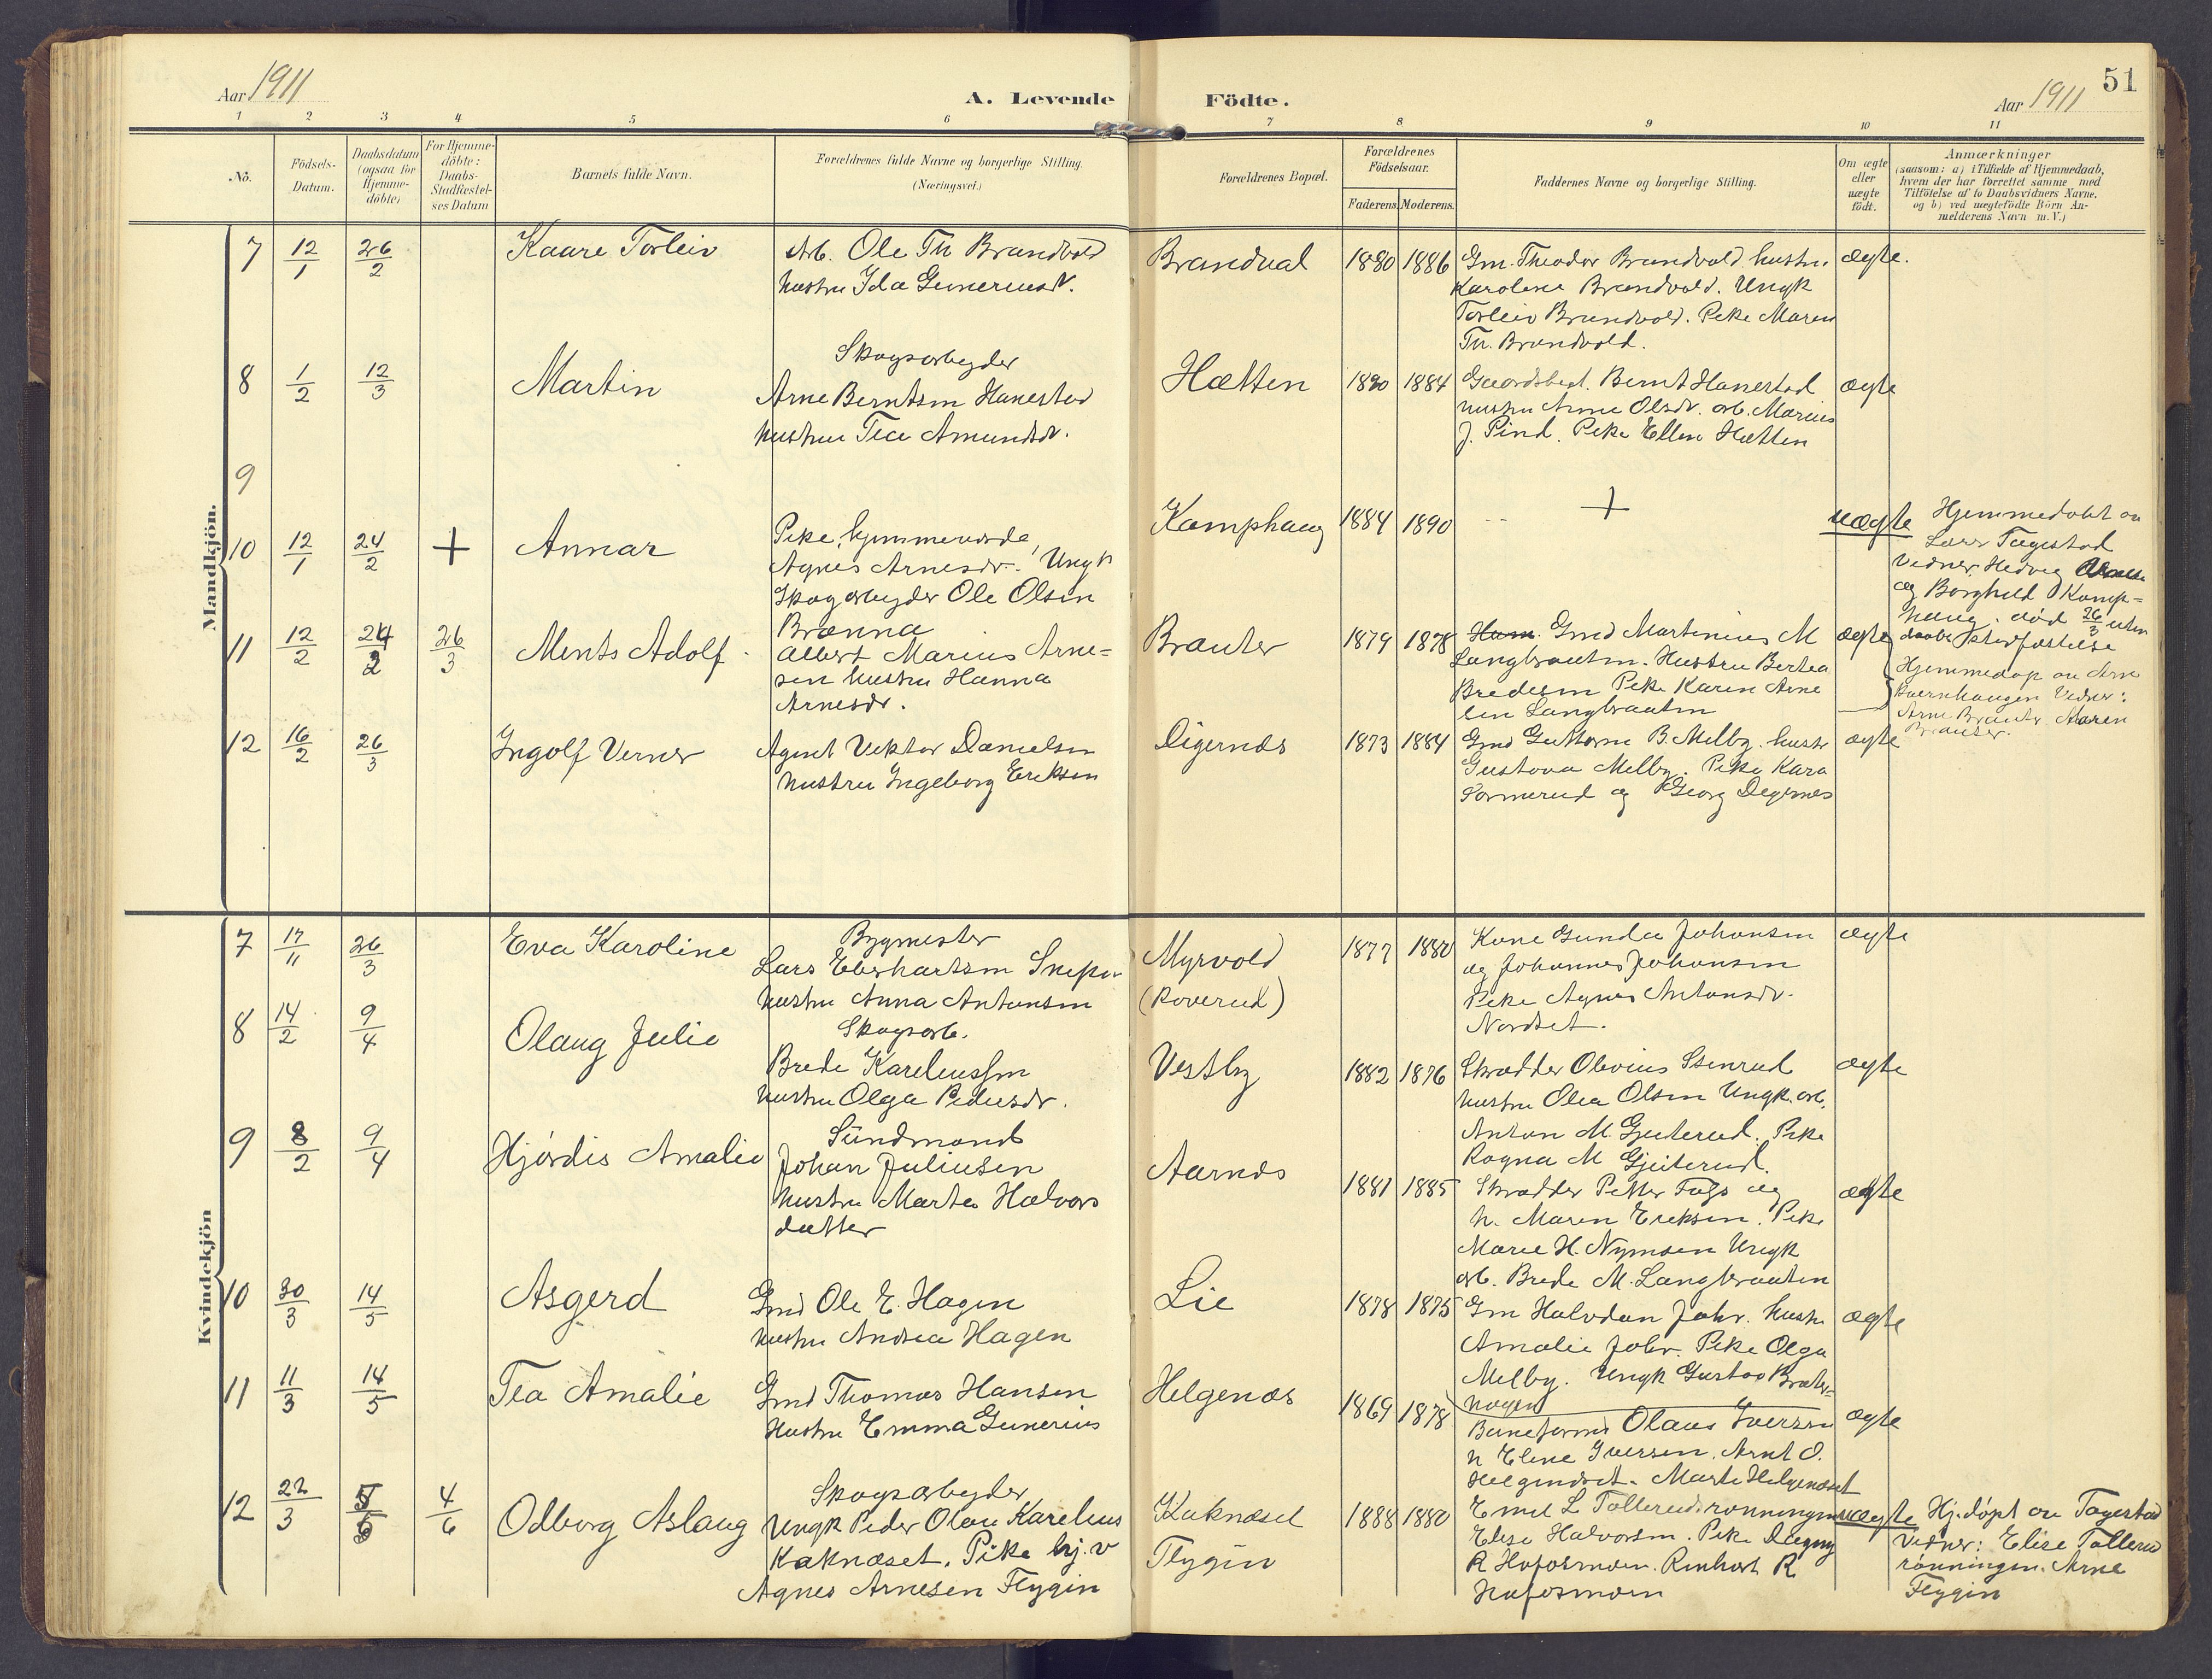 Aar 1911
A. Levende Födte.
Aar 1911
51
1 2 3 4 5 6 7 8 9 10 11
No.
Födsels-
Datum.
Daabsdatum
(ogsaa for
Hjemme-
döbte)
For Hjemme-
döbte:
Daabs-
Stadfæstel-
ses Datum
Barnets fulde Navn.
Forældrenes fulde Navne og borgerlige Stilling.
(Næringsvei.)
Forældrenes Bopæl.
Forældrenes
Födselsaar.
Faderens. Moderens.
Faddernes Navne og borgerlige Stilling.
Om ægte
eller
uægte
födt.
Anmærkninger
(saasom: a) i Tilfælde af Hjemmedaab,
hvem der har forrettet samme med
Tilföielse af to Daabsvidners Navne.
og b) ved uægtefödte Börn An-
melderens Navn m. V.)
Mandkjön.
7 12/1 26/2 Kaare Torleiv
Arb. Ole Th Brandvold
hustru Ida Gunerusd.
Brandval 1880 1886
Gm. Theodor Brandvold hustru
Karoline Brandvold. Ungk
Torleiv Brandvold. Pike Maren
Th. Brandvold.
ægte.
8 1/2 12/3 Martin
Skogsarbeyder
Arne Berntsen Hanestad
hustru Tea Amundsdr.
Hætten 1880 1884
Gaardsbest. Bernt Hanestad
hustru Anne Olsdr. arb. Marius
J. Pind. Pike Ellen Hætten
ægte
9
10 12/1 24/2 + Annar
Pike, hjemmeværde,
Agnes Arnesdr. Ungk
Skogarbeyder Ole Olsen
Brænna
Kamphaug 1884 1890 +
uægte
Hjemmedøbt av
Lars Tagestad
Vidner: Hedvig
og Borghild Kamp-
haug. død 26/3 uten
daabs stadfæstelse
11 12/2 24/2 26/3 Ments Adolf
Albert Marius Arne-
sen hustru Hanna
Arnesdr.
Brauter 1879 1878
Gmd Martinius M
Langbraaten. Hustru Bertea
Bredesen Pike Karen Arne
sen Langbraaten
ægte
Hjemmedøp av Arne
Kvernhaugen Vidner:
Arne Brauter, Maren
Brauter.
12 16/2 26/3 Ingolf Verner
Agent Viktor Danielsen
hustru Ingeborg Eriksen
Digernæs 1873 1884
Gmd Guttorm B. Melby. hustr
Gustava Melby. Pike Kara
Sormerud og Georg Degernes
ægte
Kvindekjön
7 17/11 26/3 Eva Karoline
Bygmester
Lars Eberhartsen Snepo
hustru Anna Antonsen
Myrvold
(Roverud)
1877 1880
Kone Gunda Johansen
og Johannes Johansen
Pike Agnes Antonsdr.
Nordset.
ægte
8 14/2 9/4 Olaug Julie
Skogsarb.
Brede Kareliussen
hustru Olga Pedersdr.
Vestby 1882 1876
Skrædder Olevius Stenrud
hustru Olea Olsen Ungk. arb.
Anton M. Gjeiterud. Pike
Ragna M Gjeiterud.
ægte
9 8/2 9/4 Hjördis Amalie
Sündmand
Johan Juliusen
hustru Marte Halvors
datter
Aarnæs 1881 1885
Skrædder Petter Fugs og
h. Maren Eriksen. Pike
Marie H. Nymoen Ungk
arb. Brede M. Langbraaten
ægte
10 30/3 14/5 Asgerd
Gmd Ole E. Hagen
hustru Andrea Hagen
Lie 1878 1875
Gm Halvdan Johr. hustru
Amalie Johr. Pike Olga
Melby. Ungk Gustav Bræn-
hagen
ægte
11 11/3 14/5 Tea Amalie
Gmd Thomas Hansen
Hustru Emma Gunerius
Helgenæs 1869 1878
Baneformd Olaus Iversen
h Eline Iversen. Arnt O.
Helgenæset. Marte Helgenæset
ægte
12 22/3 5/5 4/6 Odborg Aslaug
Skogsarbeyder
Ungk Peder Olav Karelius
Kaknæset. Pike hj.v
Agnes Arnesen Flygin
Kaknæset
Flygin
1888 1880
Emil L Tollerudsrønningen
Elise Halvorsen. Pike Dagny
R. Hafosmoen. Reinhart R
Hafosmoen
uægte
Hj.døpt av Tagestad
Vidner: Elise Tollerud
rønningen. Arne
Flygin